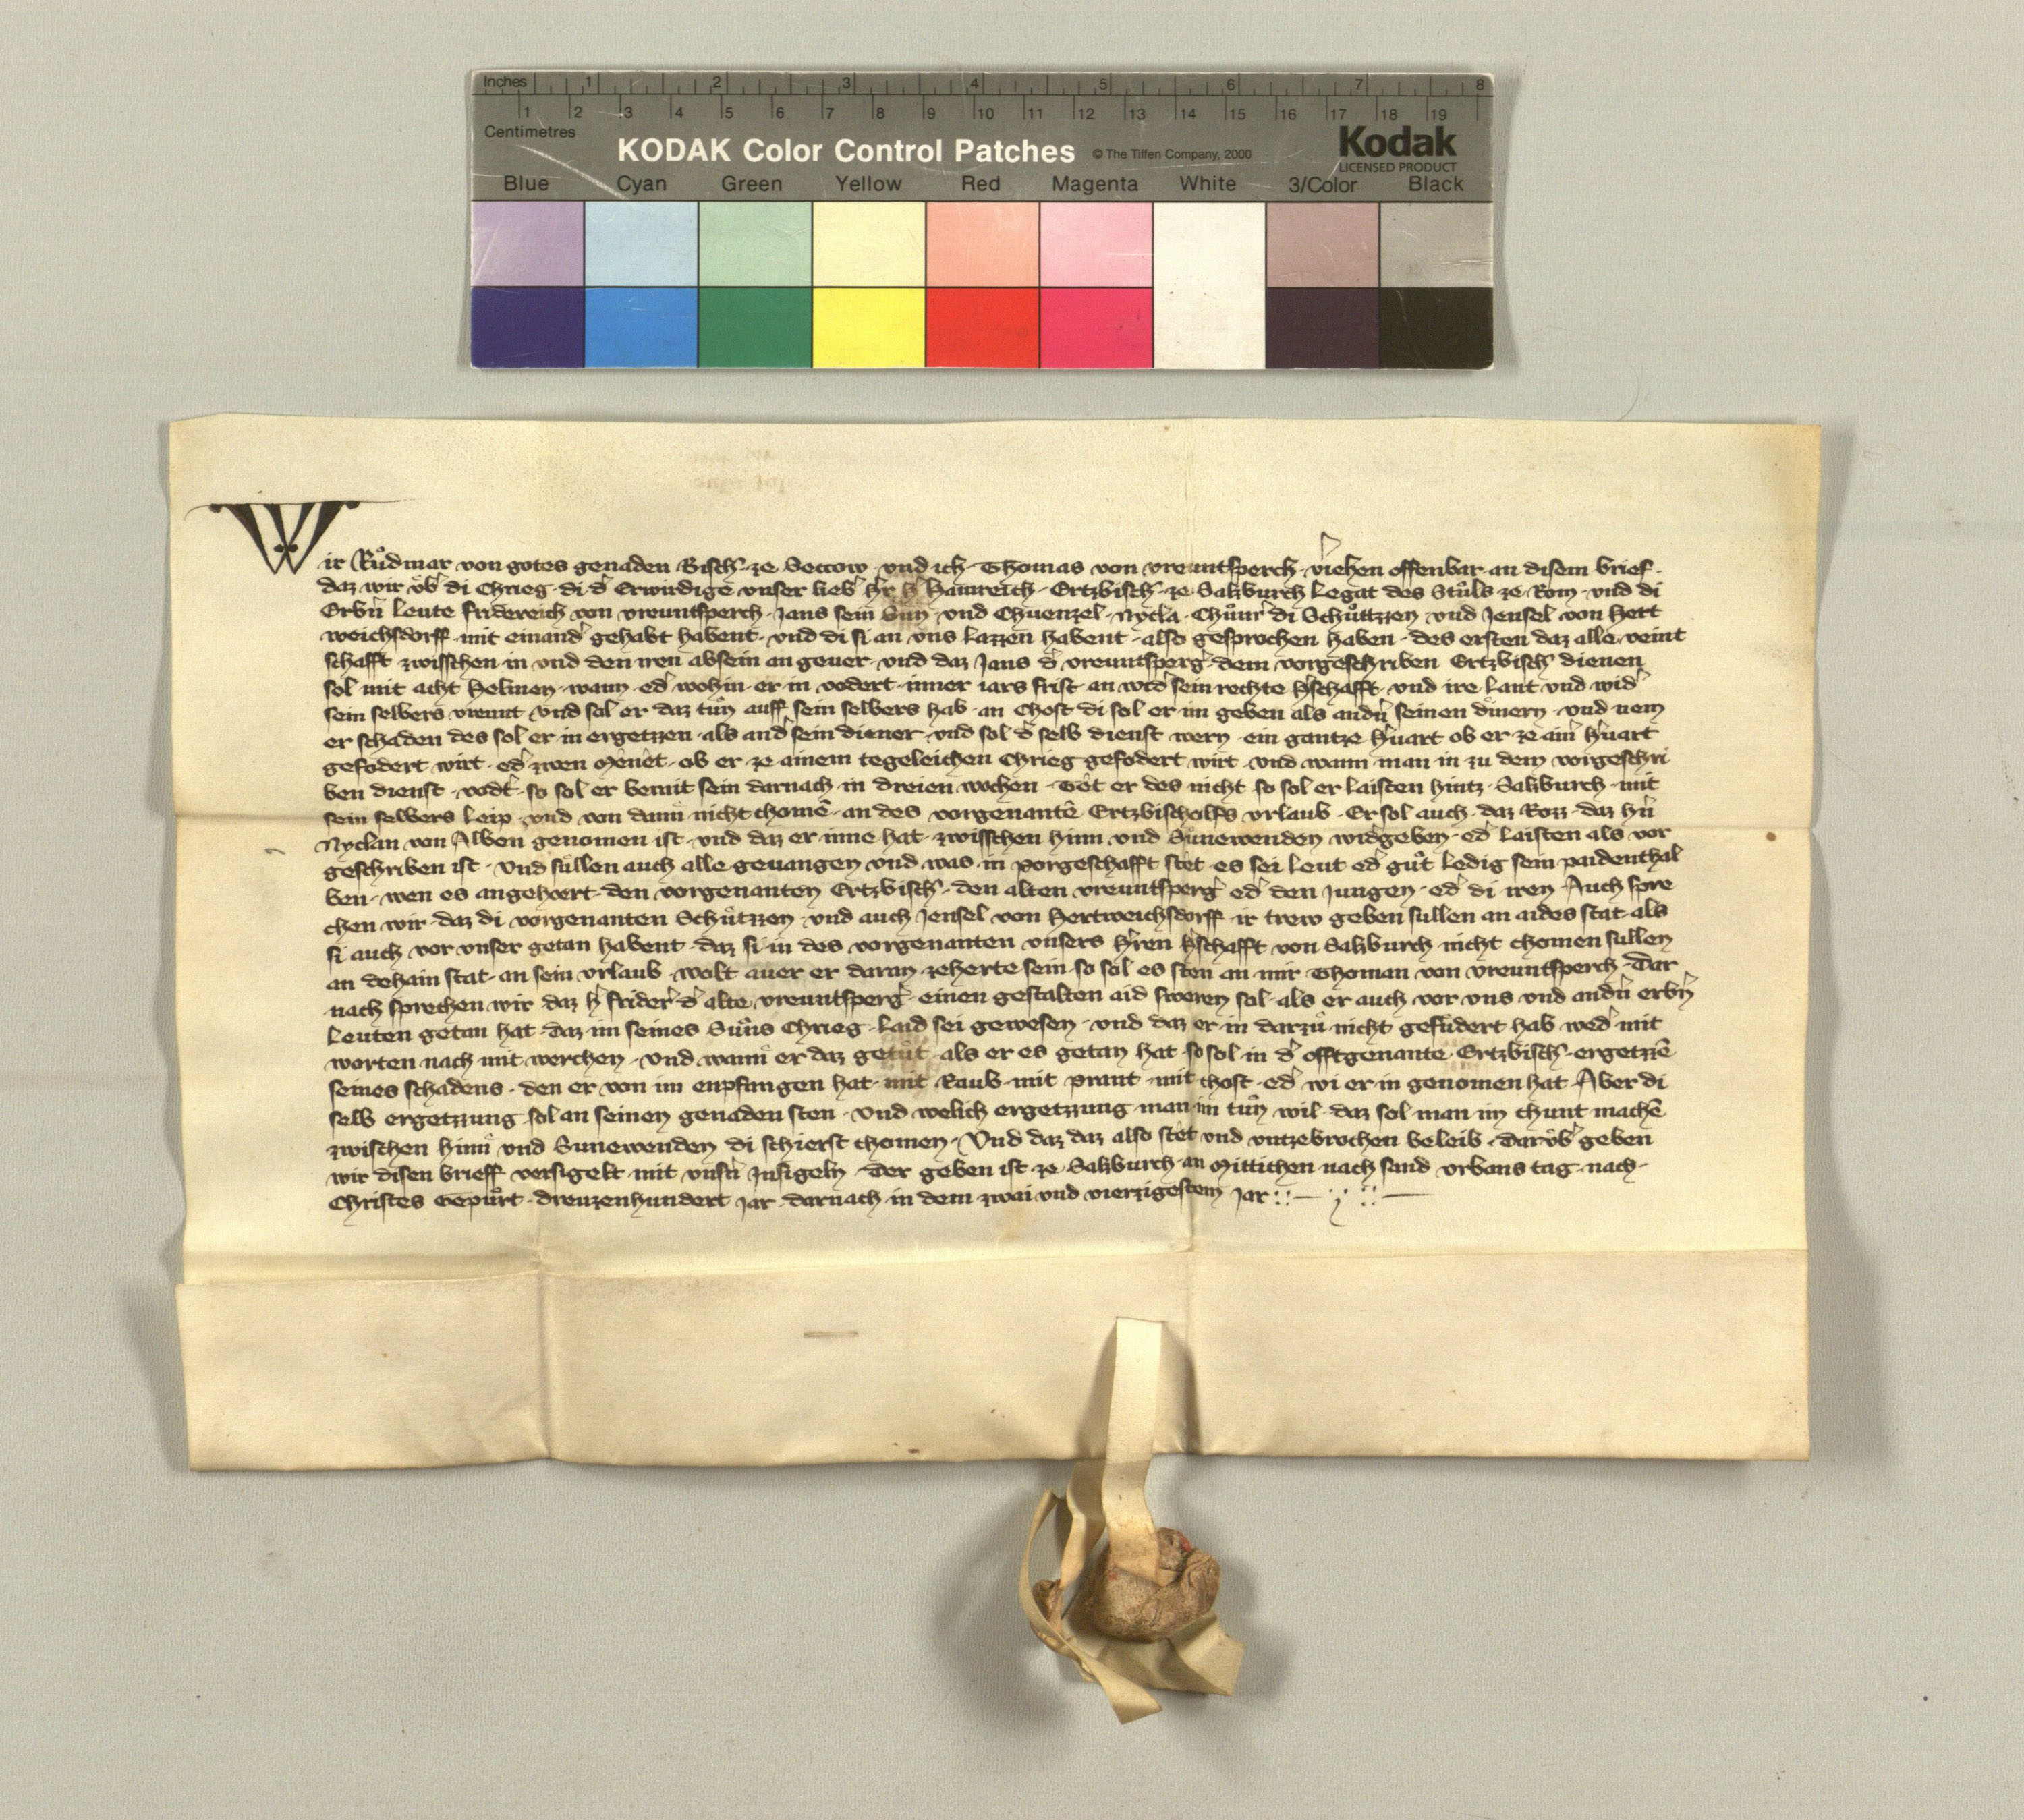 Inches 1 2 3 4 5 6 7 8
1 2 3 4 5 6 7 8 9 10 11 12 13 14 15 16 17 18 19
Centimetres
KODAK Color Control Patches © The Tiffen Company, 2000 Kodak
LICENSED PRODUCT
Blue Cyan Green Yellow Red Magenta White 3/Color Black
Wir Růdmar von gotes genaden Bisch̄ · ze Seccow · vnd ich · Thomas von vreuntsperch · v̓iehen offenbar · an disem brief ·
daz wir v̊b̓ di Chrieg · di · d̓ Erwirdige vnser lieb̓ h̓r h̓ Hainreich · Ertzbisch̄ · ze Salzburch Legat des Stůls ze Rom · vnd di
Erb̓n Leute fridereich von vreuntsperch · Jans sein Sun · vnd Chuenzel · Nycla · Chůnr̓ di Schůttzzen · vnd Jensel · von Hert
weichsdorff · mit einand̓ gehabt habent · vnd di si an vns Lazzen habent · also gesprochen haben · des ersten daz alle veint
schafft · zwisschen in vnd den iren absein an geuer · vnd daz Jans d̓ vreuntsperg̓ · dem vorgeschriben Ertzbisch̄ dienen
sol mit acht Helmen · wann · ed̓ wohin · er in vodert · inner iars frist · an wid̓ sein rechte h̓schafft · vnd ire Lant vnd wid̓
sein selbers vreunt vnd sol er daz tůn auff sein selbers hab · an Chost di sol er im geben als and̓n seinen dienern · vnd nem
er schaden des sol er in ergetzzen · als and̓ sein diener · vnd sol d̓ selb dienst wern · ein gantze h̓uart ob er ze aim̓ h̓uart
gefodert wirt · ed̓ zwen Menêt · ob er ze ainem tegeleichen Chrieg gefodert wirt · vnd wann man in zu dem vorgeschri
ben dienst · vodt̓ · so sol er berait sein darnach · in dreien wochen · Têt er des nicht · so sol er Laisten hintz · Salzburch · mit
sein selbers Leip · vnd von dann̄ nicht chomē · an des vorgenantē · Ertzbischolfs vrlaub · Er sol auch · daz Rozz · daz h̓n
Nyclan von Alben genomen ist · vnd daz er inne hat · zwisschen hinn vnd Sunewenden wid̓geben · ed̓ Laisten als vor
geschriben ist · Vnd süllen auch alle geuangen vnd was in porgeschafft stet · es sei Leut ed̓ gůt Ledig sein paidenthal
ben · wen es angehoert · den vorgenanten Ertzbisch̄ · den alten vreuntsperg̓ ed̓ den Jungen · ed̓ di iren · Auch spre
chen wir · daz di vorgenanten Schůtzzen · vnd auch Jensel von Hertweichsdorff · ir trew geben sullen an aides stat als
si auch vor vnser getan habent · daz si in des vorgenanten vnsers h̓ren h̓schafft von Salzburch nicht chomen sullen
an dehain stat · an sein vrlaub · wolt auer er daran zeherte sein so sol es sten an mir Thoman von vreuntsperch · Dar
nach sprechen wir daz h̓ frider̓ · d̓ alte vreuntsperg̓ · einen gestalten aid sweren sol · als er auch vor vns vnd and̓n erb̓n
Leuten getan hat · daz im seines Suns Chrieg · Laid sei gewesen · vnd daz er in darzů nicht gefudert hab wed̓ mit
worten nach mit werchen · Vnd wann̄ er daz getůt · als er es getan hat · so sol in d̓ offtgenante · Ertzbisch̄ · ergetzzē
seines schadens · den er von im enpfangen hat · mit Raub · mit prant · mit chost · ed̓ wi er in genomen hat · Aber di
selb ergetzzung · sol an seinen genaden sten · Vnd welich ergetzzung man im tůn wil · daz sol man im chunt machē
zwischen hinn̄ vnd Sunewenden di schierst chomen · Vnd daz daz also stêt vnd vntzebrochen beleib · darv̊b̓ geben
wir disen brieff versigelt mit vns̓n Jnsigeln · Der geben ist ze Salzburch · an Mittichen · nach sand Vrbans tag · nach ·
Christes Gepůrt · dreuzenhundert Jar · darnach in dem zwai vnd vierzigestem Jar